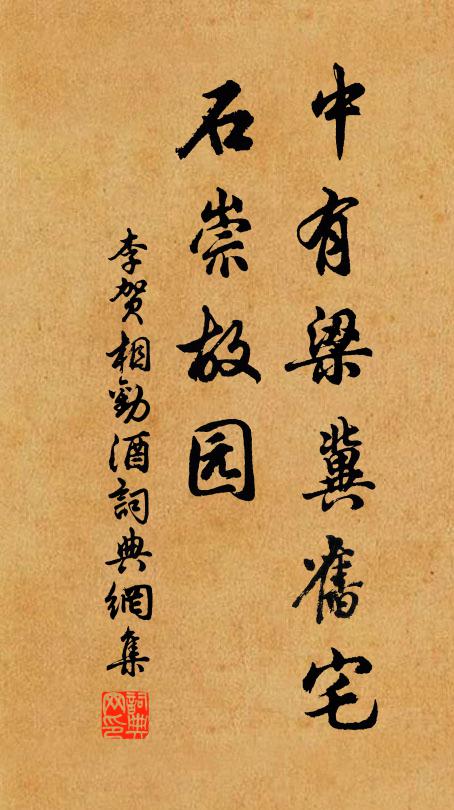 中有梁冀舊宅
石崇故园
李賀相勸酒詞典網集
詞典
网印